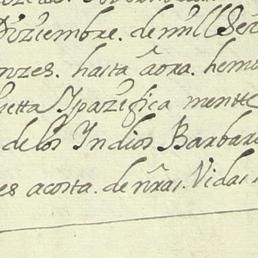 Diziembre. de mill Sei
onzes. hasta aora. hemo
uietta Ipazifica mentte
de los Indios Barbar
es acosta. de nr̃as. Vidas